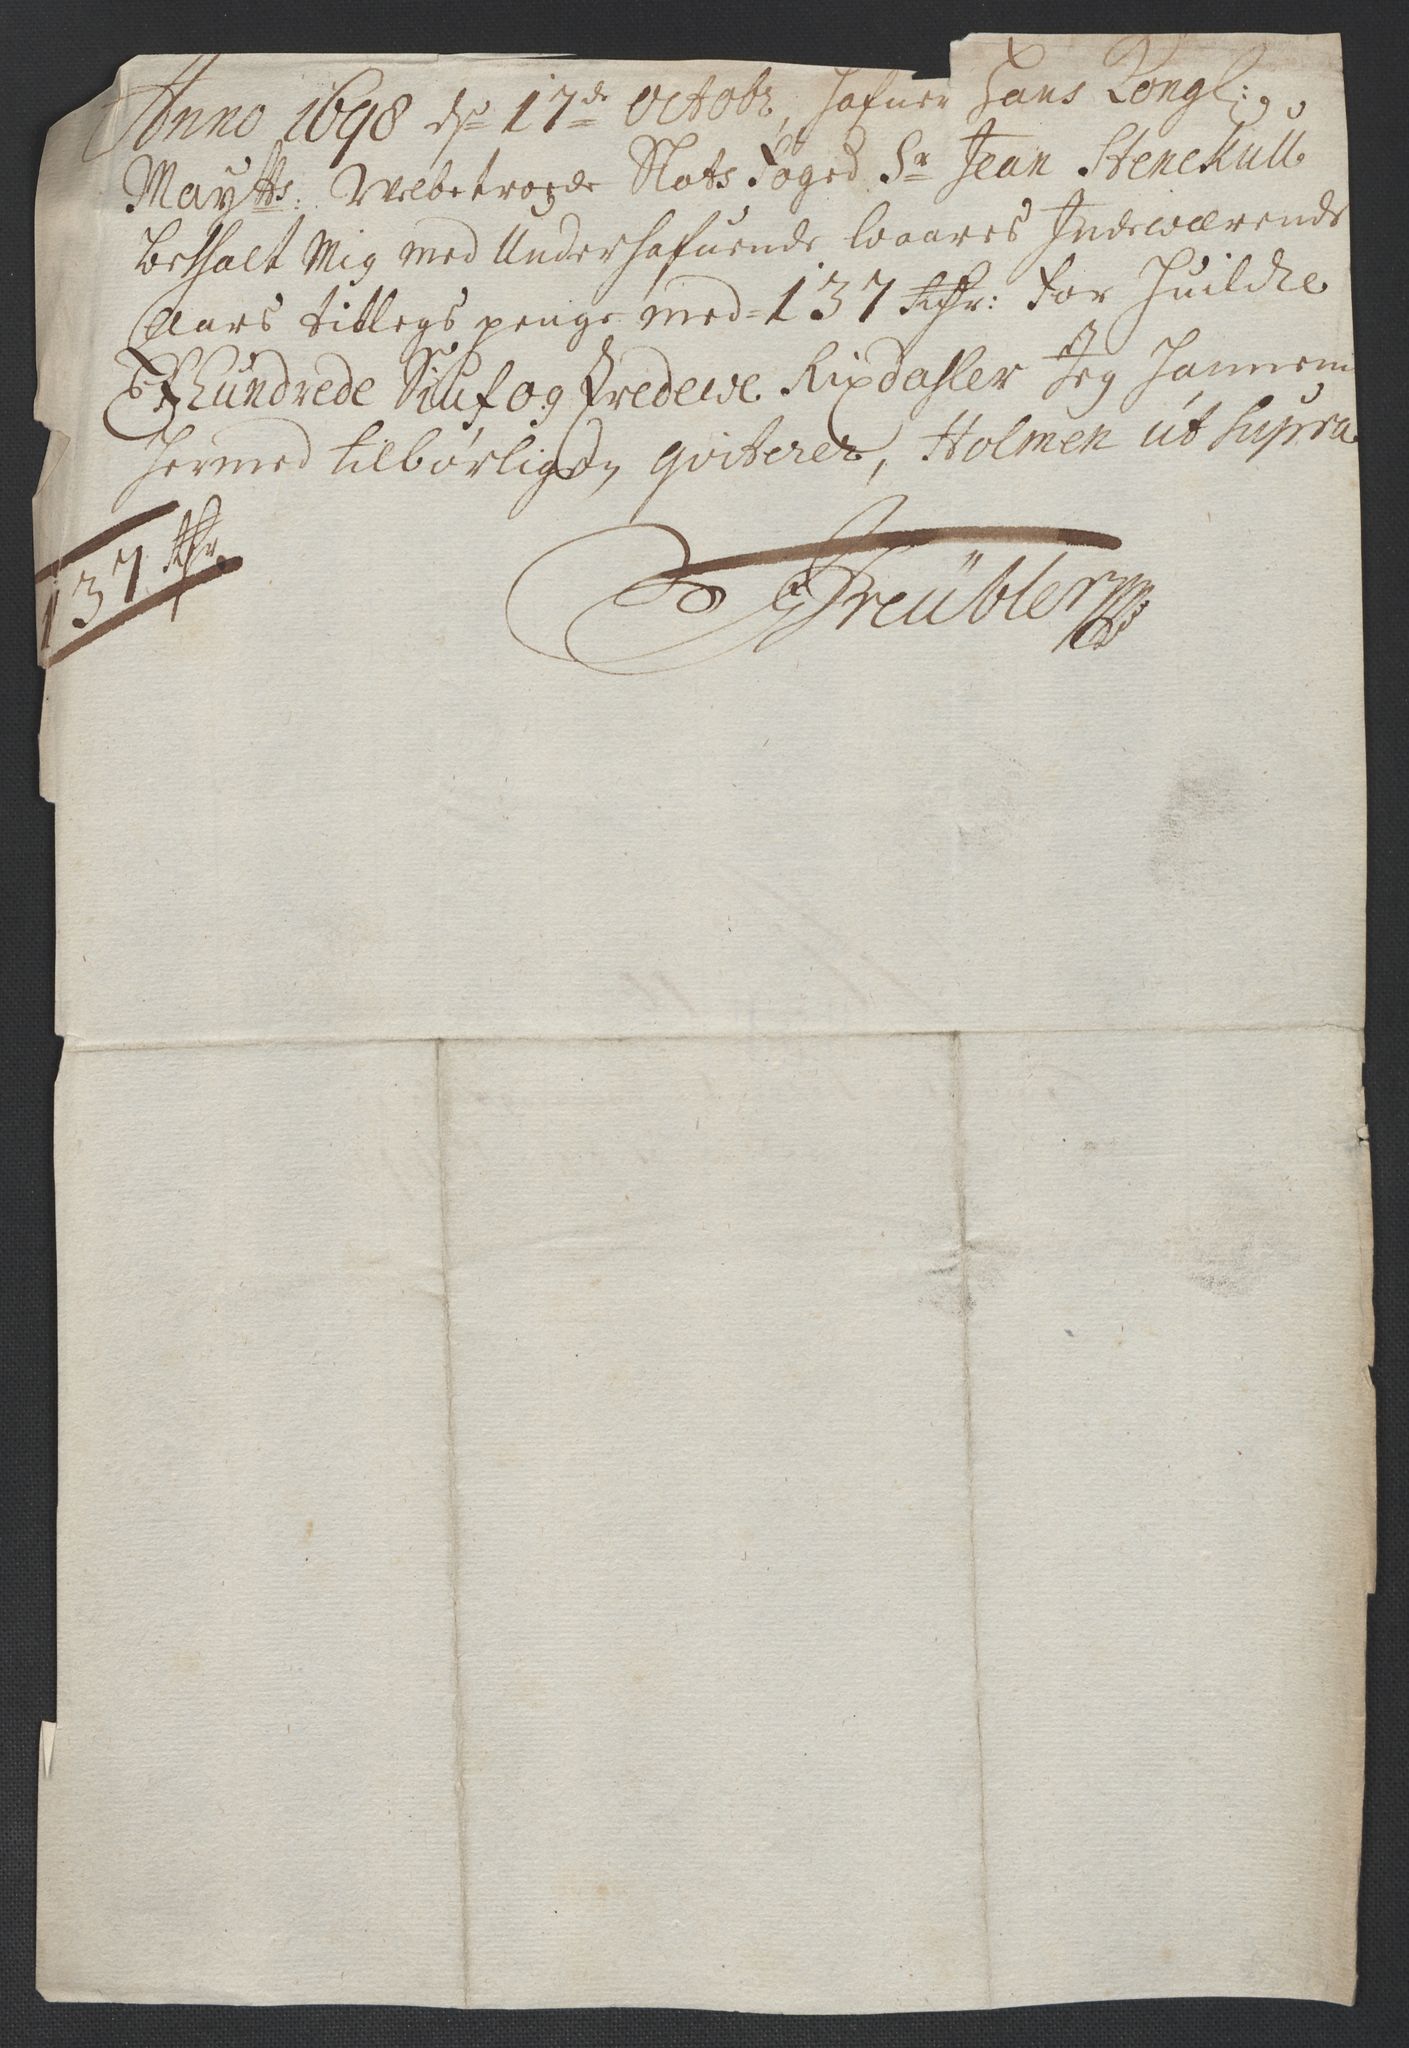 Anno 1698 dh 17de octobr, hafuer Hans Kongl:
Maytts: Velbetroede Slots Foged Sr Jean Stenekull
bethalt Mig med Underhafuende waares Indewærende
Aars tillegs penge med 137 Rdr: for huilcke
Et Hundrede Siuf og Tredeve Rixdahler Jeg hannem
hermed tilbørligen qviterer, Holmen ut supra
137 Rdr
Treübler